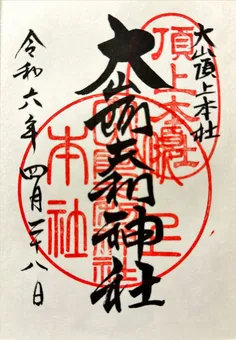 大山頂上本社
大山阿夫利神社
令和六年 四月二十八日
頂上
本社